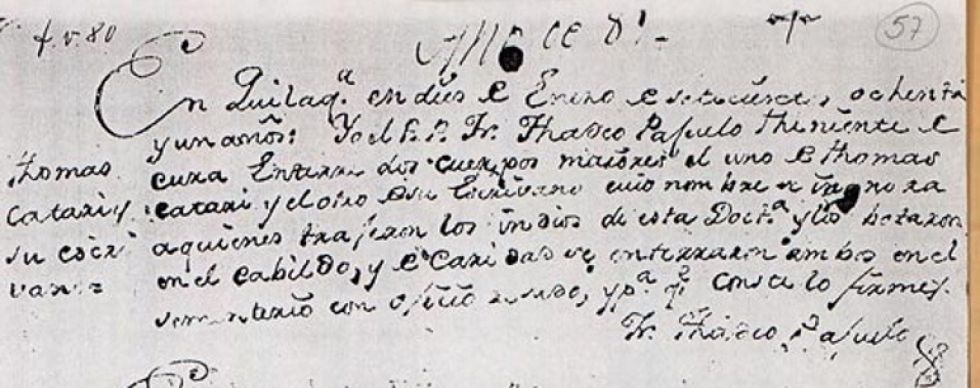 f. v. 80
Año de 81.
57
En Quilaq.ª en dies e Enero e setecientos ochenta
y un años: Yo el P. Fr. Thadeo Pasulo Theniente e
cura Enterre dos cuerpos maiores el uno e thomas
catari y el otro e su Escrivano cuio nombre se ingnora
a quienes trajeron los indios de esta Doct.ª y los botaron
en el cabildo, y e caridad se enterraron ambos en el
sementerio con oficio resado, y p.ª q.e conste lo firme.
Fr. Thadeo Pasulo
thomas
Catari y
su escri
vano =